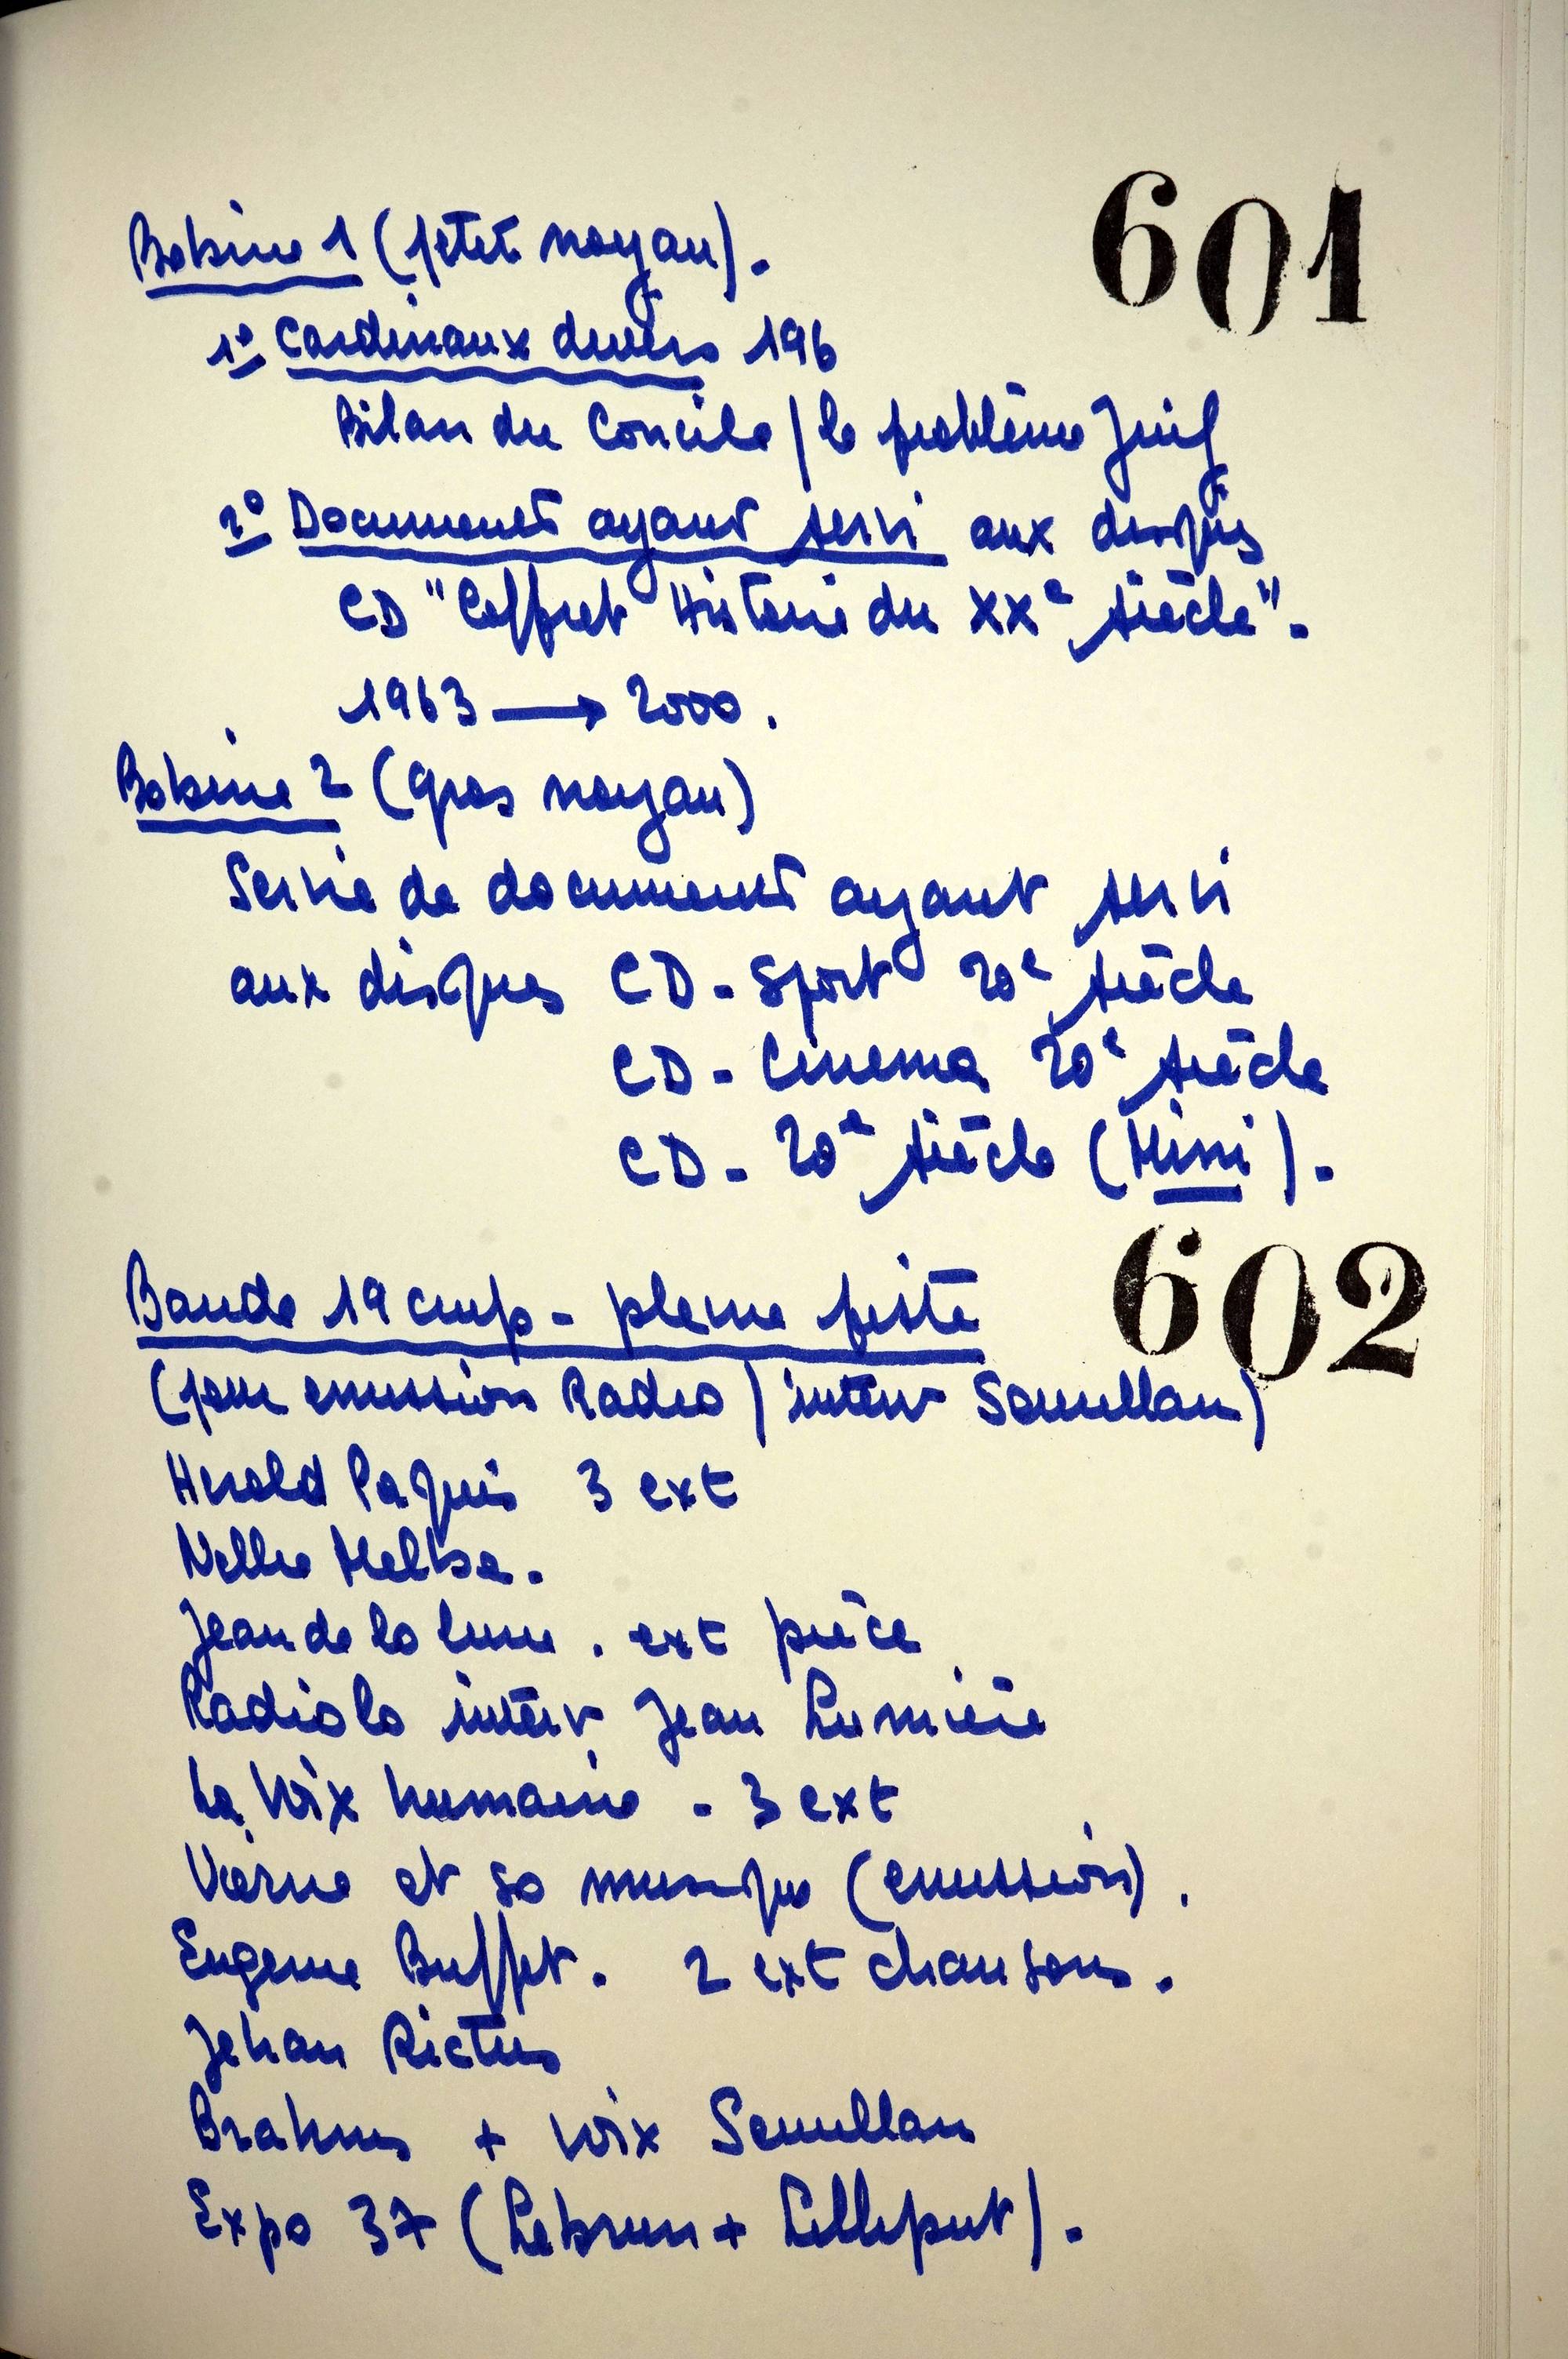 601
Bobine 1 (petit noyau).
1° Cardinaux divers 196
Bilan du Concile / le problème Juif
2° Documents ayant servi aux disques
CD "Coffret Histoire du XXe siècle".
1963 → 2000.
Bobine 2 (gros noyau)
Série de documents ayant servi
aux disques CD - Sport 20e siècle
CD - Cinema 20e siècle
CD - 20e siècle (Mini).
602
Bande 19 cmps - pleine piste
(pour emission Radio / interv
Herold Paquis 3 ext
Nellie Melba.
Jean de la lune . ext pièce
Radiolo interv Jean Lumière
La Voix humaine - 3 ext
Vierne et sa musique (emission).
Eugenie Buffet. 2 ext chansons.
Jehan Rictus
Brahms + voix
Expo 37 (Lebrun + Lilliput).